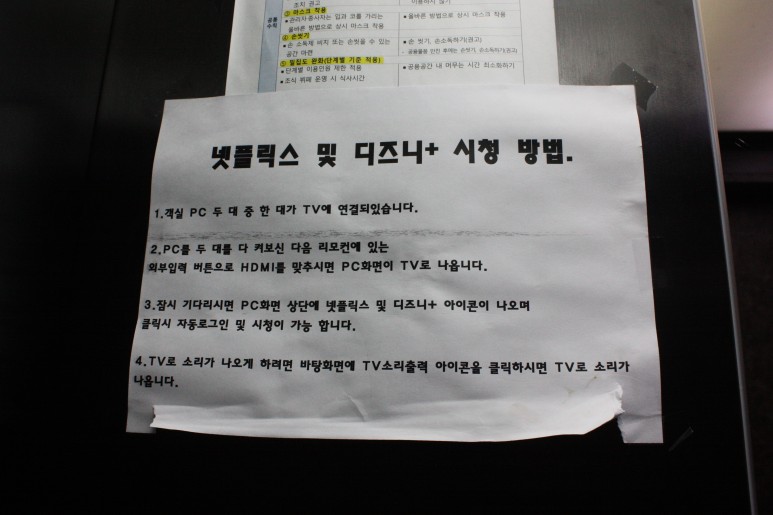 조치 권고
이용하지 않기
공통
수칙
① 마스크 착용
▪관리자·종사자는 입과 코를 가리는
올바른 방법으로 상시 마스크 착용
▪올바른 방법으로 상시 마스크 착용
② 손씻기
▪손 소독제 비치 또는 손씻을 수 있는
공간 마련
▪손 씻기, 손소독하기(권고)
- 공용물품 만진 후에는 손씻기, 손소독하기(권고)
③ 밀집도 완화(단계별 기준 적용)
▪단계별 이용인원 제한 적용
▪조식 뷔페 운영 시 식사시간
▪공용공간 내 머무는 시간 최소화하기
넷플릭스 및 디즈니+ 시청 방법.
1.객실 PC 두 대 중 한 대가 TV에 연결되있습니다.
2.PC를 두 대를 다 켜보신 다음 리모컨에 있는
외부입력 버튼으로 HDMI를 맞추시면 PC화면이 TV로 나옵니다.
3.잠시 기다리시면 PC화면 상단에 넷플릭스 및 디즈니+ 아이콘이 나오며
클릭시 자동로그인 및 시청이 가능 합니다.
4.TV로 소리가 나오게 하려면 바탕화면에 TV소리출력 아이콘을 클릭하시면 TV로 소리가
나옵니다.